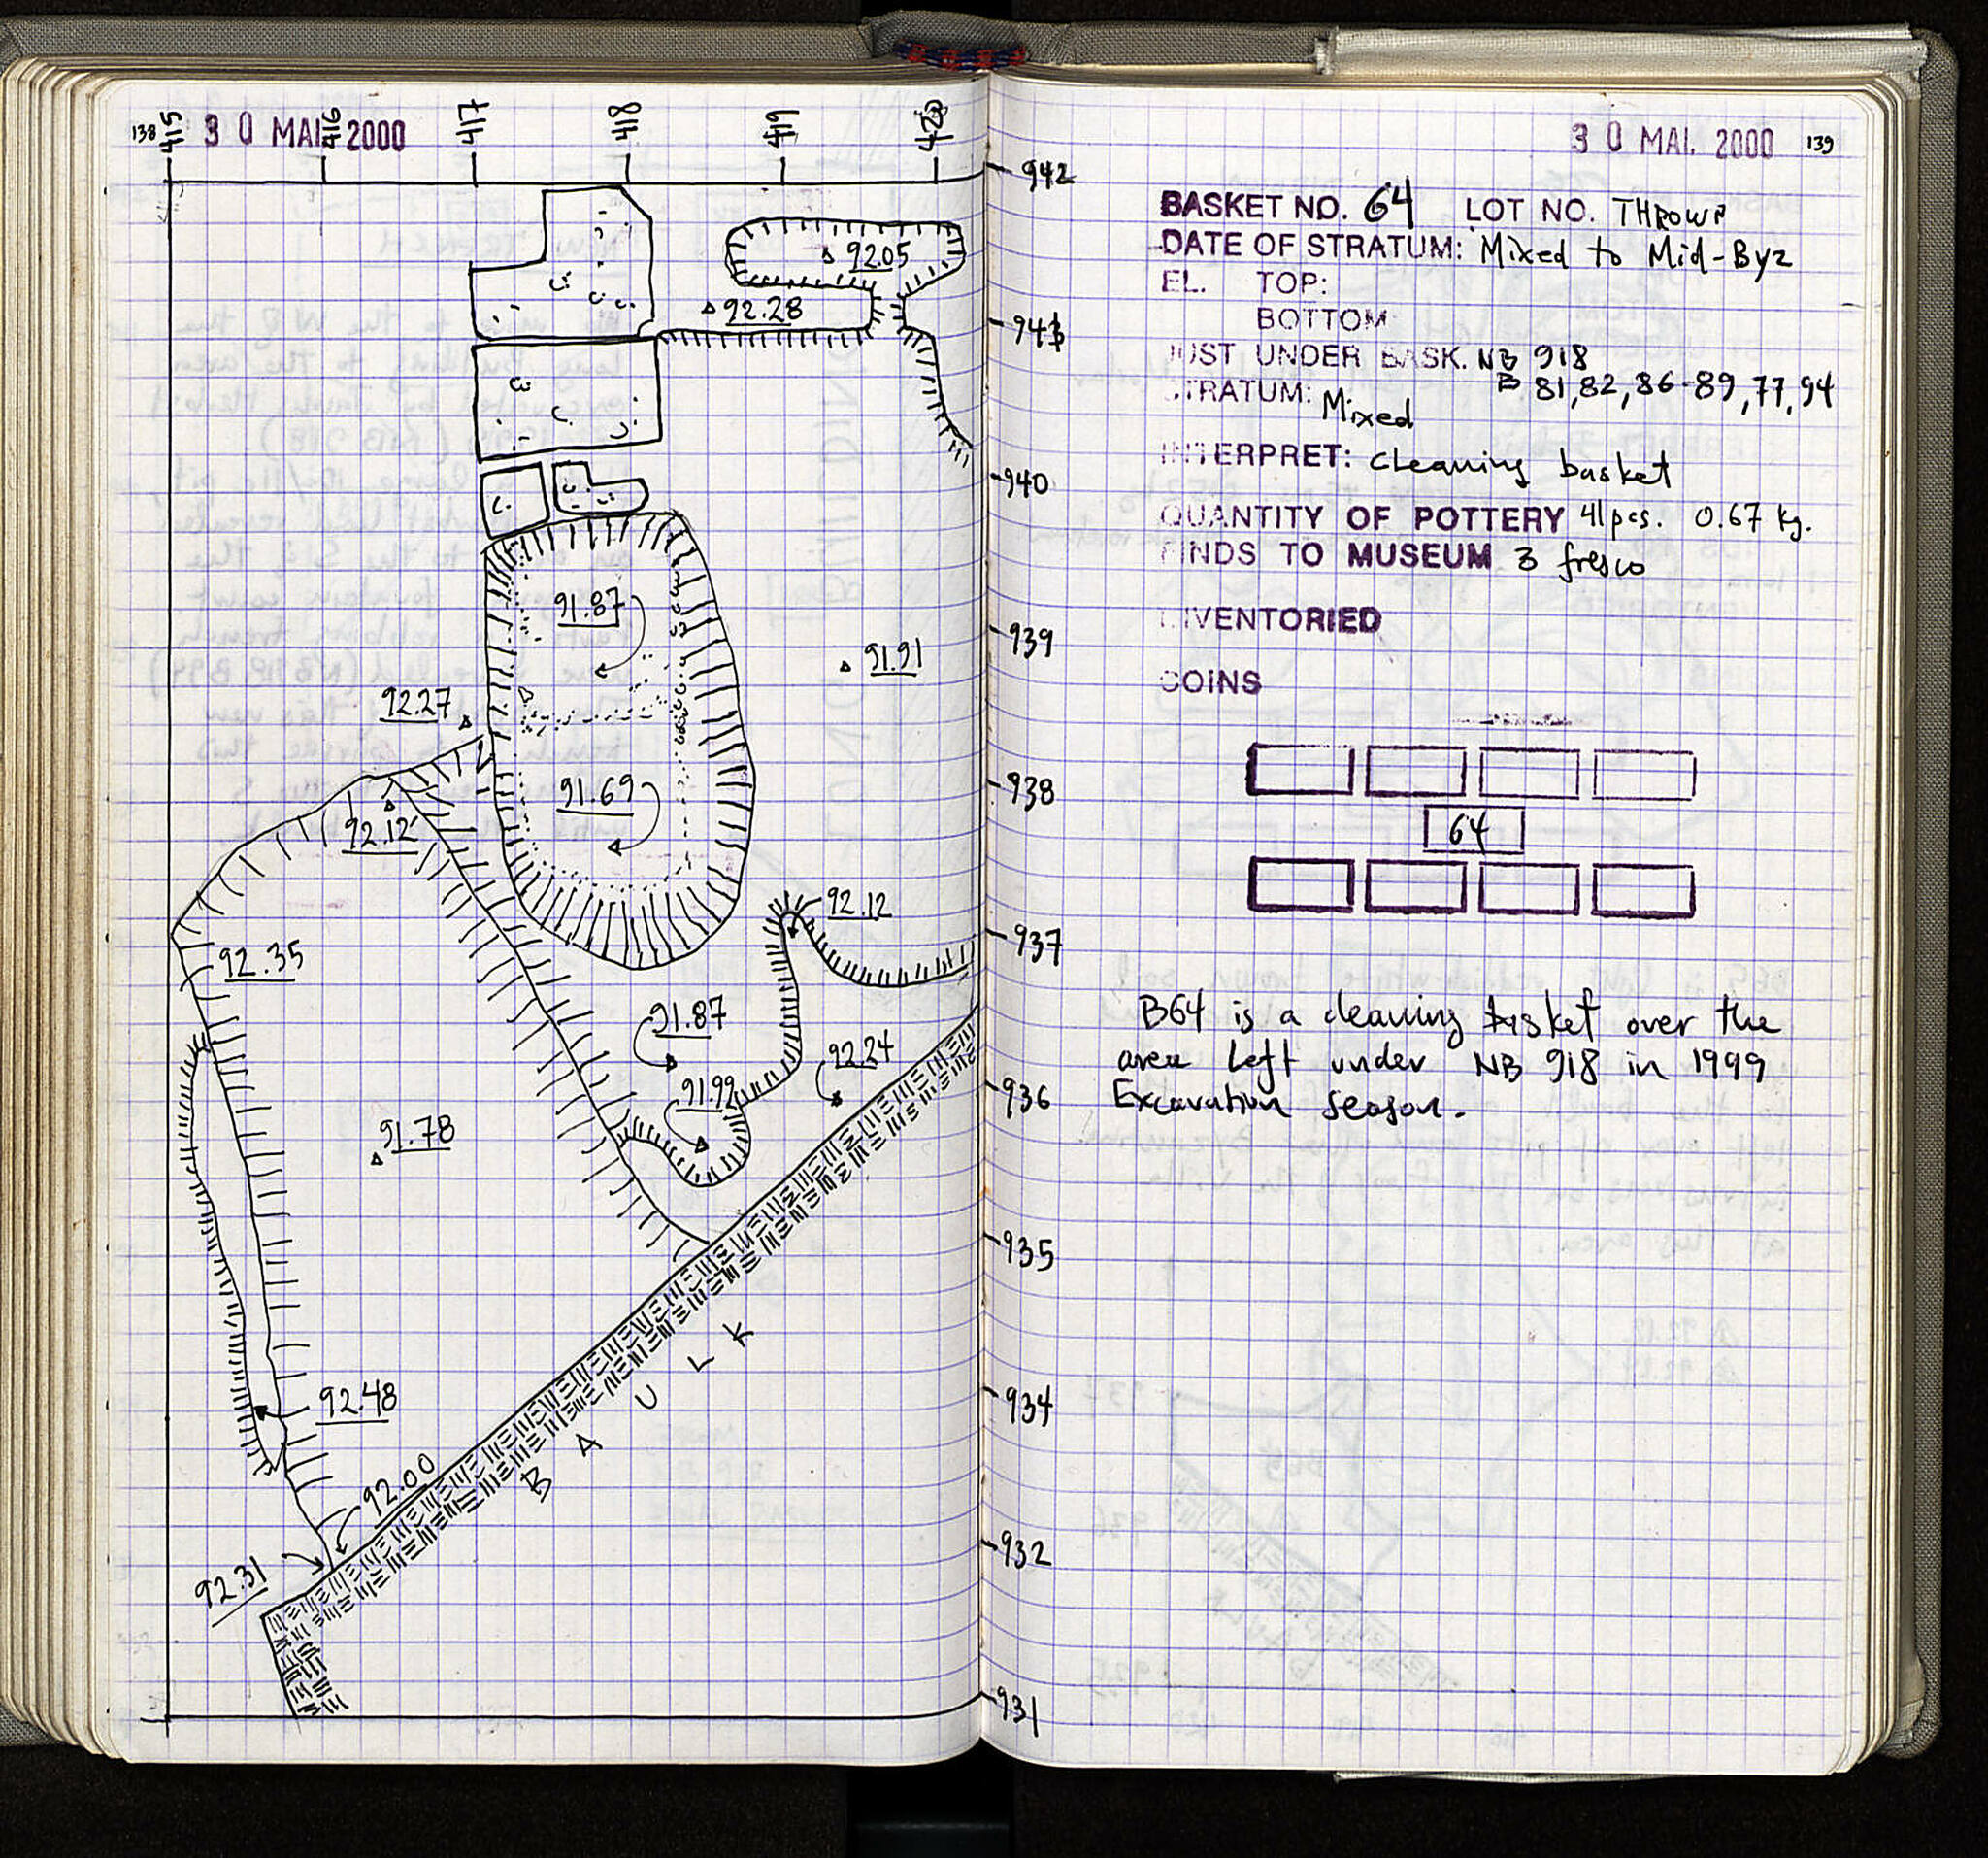 138
30 MAI. 2000
415
416
417
418
419
420
92.05
92.28
91.87
91.91
92.27
91.69
92.12
92.35
92.12
91.87
92.24
91.99
91.78
92.48
92.00
92.31
B A U L K
30 MAI. 2000
139
942
941
940
939
938
937
936
935
934
932
931
BASKET NO. 64 LOT NO. THROWN
DATE OF STRATUM: Mixed to Mid-Byz
EL. TOP:
BOTTOM
JUST UNDER BASK. NB 918
B 81,82,86-89,77,94
STRATUM: Mixed
INTERPRET: Cleaning basket
QUANTITY OF POTTERY 41pcs. 0.67 kg.
FINDS TO MUSEUM 3 fresco
INVENTORIED
COINS
64
B64 is a cleaning basket over the
area left under NB 918 in 1999
Excavation season.